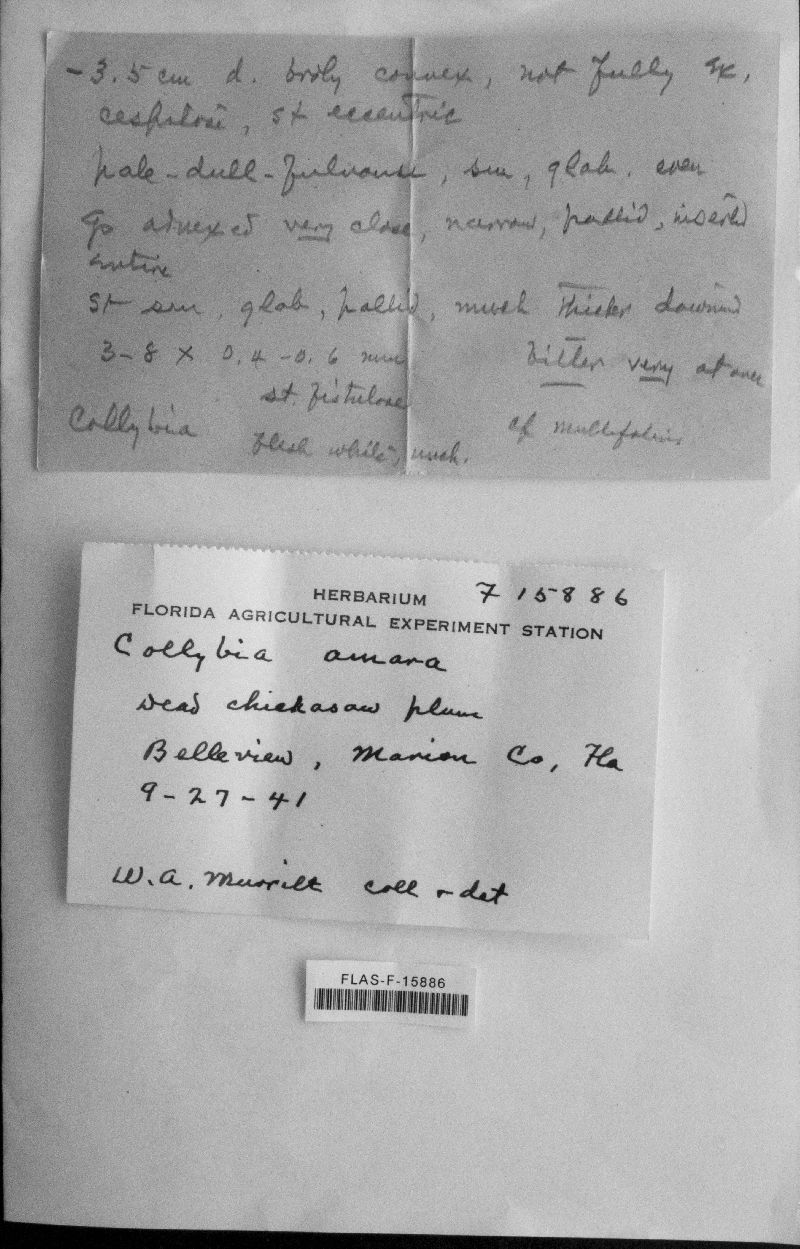 - 3.5 cm d. brdly convex, not fully ex,
cespitose, st eccentric
pale-dull-fulvous, sm, glab. even
Gs adnexed very close, narrow, pallid, inserted
entire
St sm, glab, pallid, much thicker downwd
3-8 x 0.4-0.6 mm bitter very at once
st. fistulose
Collybia cf multifolia
flesh white, unch.
HERBARIUM F 15886
FLORIDA AGRICULTURAL EXPERIMENT STATION
Collybia amara
Dead chickasaw plum
Belleview, Marion Co, Fla
9-27-41
W.A. Murrill coll & det
FLAS-F-15886